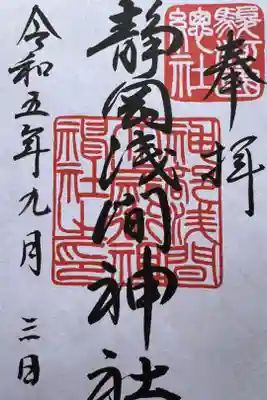 奉拝
静岡浅間神社
令和五年九月三日